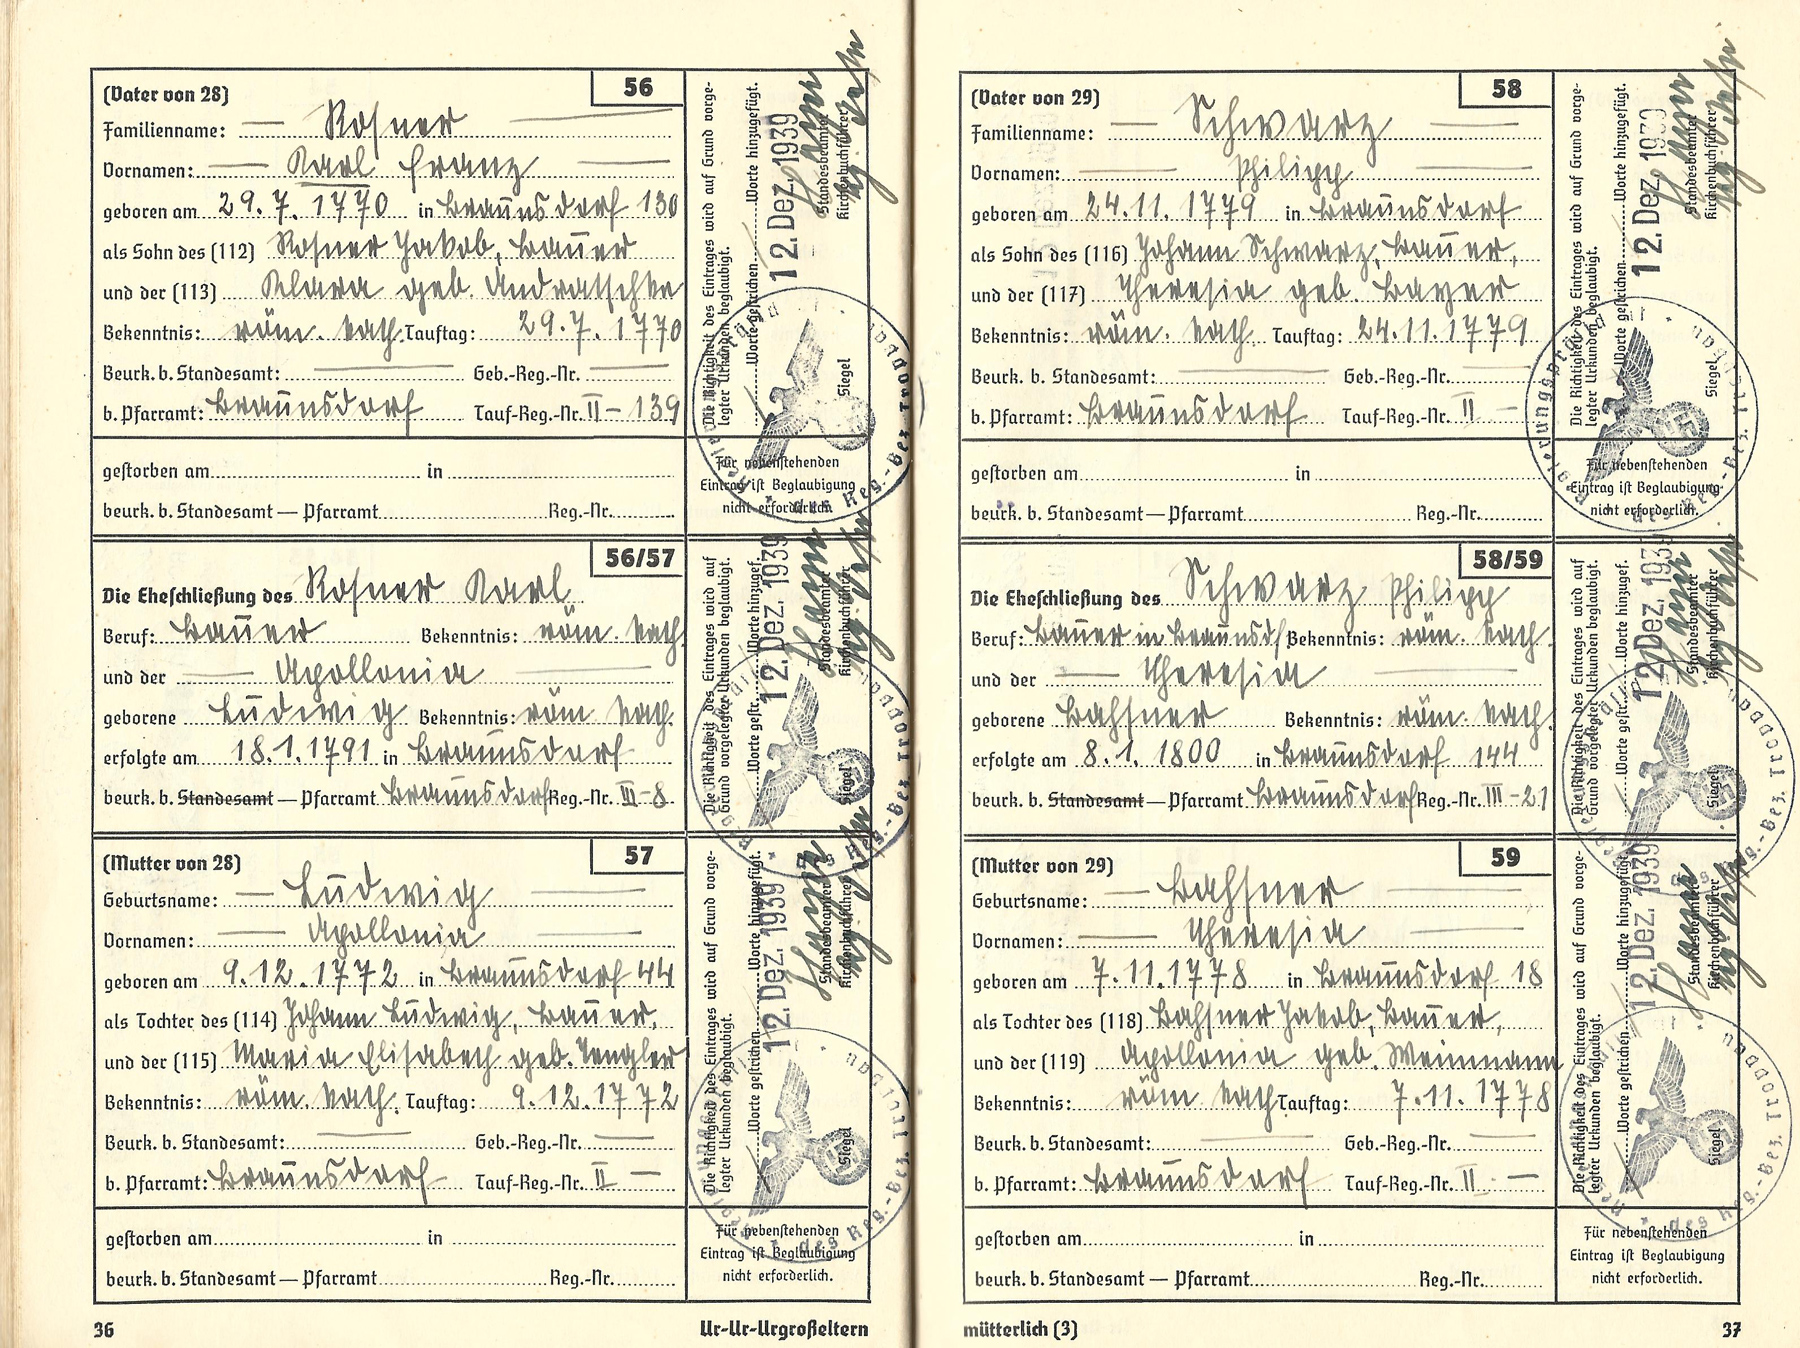 (Vater von 28) 56
Familienname: — Rosner —
Vornamen: — Karl Franz —
geboren am 29.7.1770 in Braunsdorf 130
als Sohn des (112) Rosner Jakob, Bauer
und der (113) Klara geb. Andratschke
Bekenntnis: röm. kath. Tauftag: 29.7.1770
Beurk. b. Standesamt: — Geb.-Reg.-Nr. —
b. Pfarramt: Braunsdorf Tauf-Reg.-Nr. II – 139
gestorben am in
beurk. b. Standesamt — Pfarramt Reg.-Nr.
Die Richtigkeit des Eintrages wird auf Grund vorge-
legter Urkunden beglaubigt.
Worte hinzugefügt.
Worte gestrichen.
12. Dez. 1939
Standesbeamter
Kirchenbuchführer
Siegel
des Reg.-Bez. Troppau
Für nebenstehenden
Eintrag ist Beglaubigung
nicht erforderlich.
56/57
Die Eheschließung des Rosner Karl
Beruf: Bauer Bekenntnis: röm. kath.
und der — Apollonia —
geborene Ludwig Bekenntnis: röm. kath.
erfolgte am 18.1.1791 in Braunsdorf
beurk. b. Standesamt — Pfarramt Braunsdorf Reg.-Nr. III–8
Die Richtigkeit des Eintrages wird auf
Grund vorgelegter Urkunden beglaubigt.
Worte hinzugef.
Worte gestr.
12. Dez. 1939
Standesbeamter
Kirchenbuchführer
Siegel
des Reg.-Bez. Troppau
(Mutter von 28) 57
Geburtsname: — Ludwig —
Vornamen: — Apollonia —
geboren am 9.12.1772 in Braunsdorf 44
als Tochter des (114) Johann Ludwig, Bauer,
und der (115) Maria Elisabeth geb. Tengler
Bekenntnis: röm. kath. Tauftag: 9.12.1772
Beurk. b. Standesamt: — Geb.-Reg.-Nr. —
b. Pfarramt: Braunsdorf Tauf-Reg.-Nr. II —
gestorben am in
beurk. b. Standesamt — Pfarramt Reg.-Nr.
Die Richtigkeit des Eintrages wird auf Grund vorge-
legter Urkunden beglaubigt.
Worte hinzugefügt.
Worte gestrichen.
12. Dez. 1939
Standesbeamter
Kirchenbuchführer
Siegel
des Reg.-Bez. Troppau
Für nebenstehenden
Eintrag ist Beglaubigung
nicht erforderlich.
36 Ur-Ur-Urgroßeltern
(Vater von 29) 58
Familienname: — Schwarz —
Vornamen: — Philipp —
geboren am 24.11.1779 in Braunsdorf
als Sohn des (116) Johann Schwarz, Bauer,
und der (117) Theresia geb. Bayer
Bekenntnis: röm. kath. Tauftag: 24.11.1779
Beurk. b. Standesamt: — Geb.-Reg.-Nr. —
b. Pfarramt: Braunsdorf Tauf-Reg.-Nr. II —
gestorben am in
beurk. b. Standesamt — Pfarramt Reg.-Nr.
Die Richtigkeit des Eintrages wird auf Grund vorge-
legter Urkunden beglaubigt.
Worte hinzugefügt.
Worte gestrichen.
12. Dez. 1939
Standesbeamter
Kirchenbuchführer
Siegel
des Reg.-Bez. Troppau
Für nebenstehenden
Eintrag ist Beglaubigung
nicht erforderlich.
58/59
Die Eheschließung des Schwarz Philipp
Beruf: Bauer in Braunsdf Bekenntnis: röm. kath.
und der — Theresia —
geborene Bahsner Bekenntnis: röm. kath.
erfolgte am 8.1.1800 in Braunsdorf 144
beurk. b. Standesamt — Pfarramt Braunsdorf Reg.-Nr. III–21
Die Richtigkeit des Eintrages wird auf
Grund vorgelegter Urkunden beglaubigt.
Worte hinzugef.
Worte gestr.
12. Dez. 1939
Standesbeamter
Kirchenbuchführer
Siegel
des Reg.-Bez. Troppau
(Mutter von 29) 59
Geburtsname: — Bahsner —
Vornamen: — Theresia —
geboren am 7.11.1778 in Braunsdorf 18
als Tochter des (118) Bahsner Jakob, Bauer,
und der (119) Apollonia geb. Weinmann
Bekenntnis: röm. kath Tauftag: 7.11.1778
Beurk. b. Standesamt: — Geb.-Reg.-Nr. —
b. Pfarramt: Braunsdorf Tauf-Reg.-Nr. II —
gestorben am in
beurk. b. Standesamt — Pfarramt Reg.-Nr.
Die Richtigkeit des Eintrages wird auf Grund vorge-
legter Urkunden beglaubigt.
Worte hinzugefügt.
Worte gestrichen.
12. Dez. 1939
Standesbeamter
Kirchenbuchführer
Siegel
des Reg.-Bez. Troppau
Für nebenstehenden
Eintrag ist Beglaubigung
nicht erforderlich.
mütterlich (3) 37